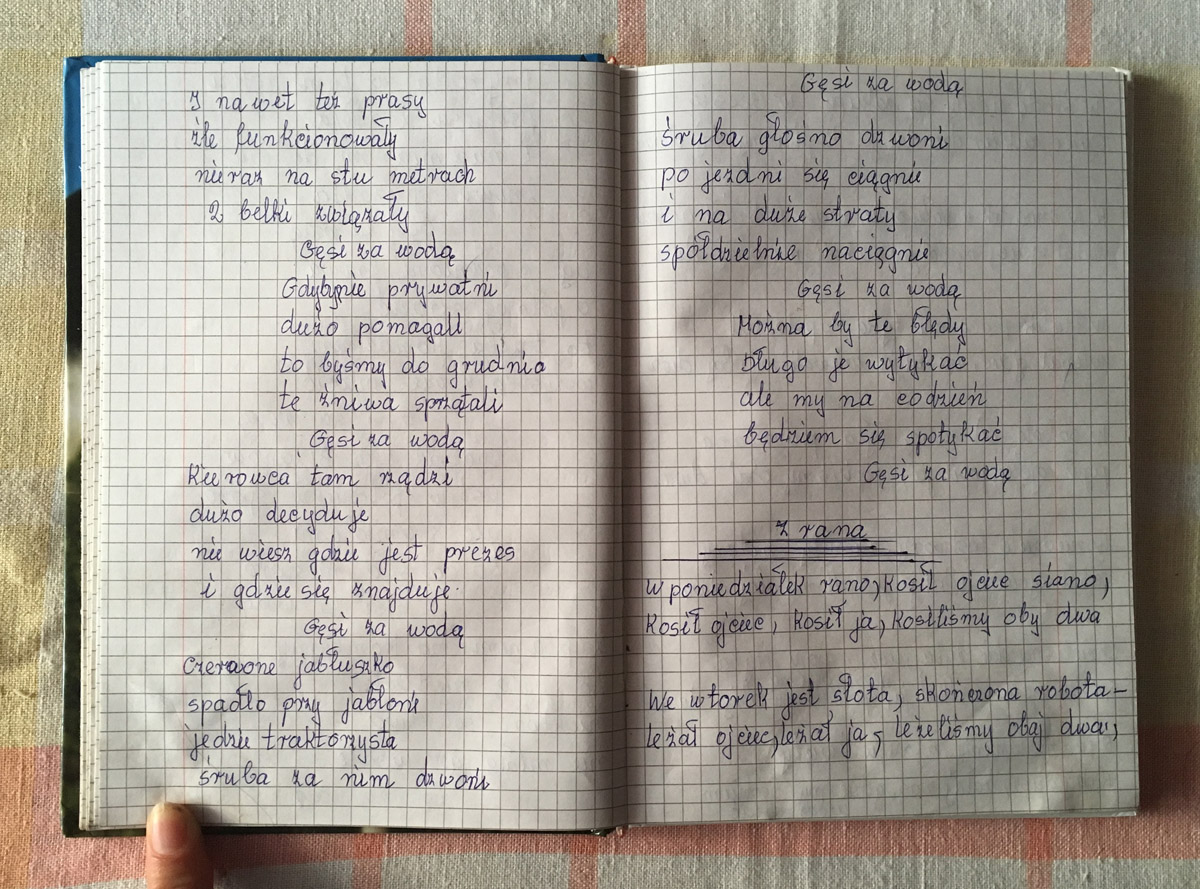 I nawet też prasy
źle funkcionowały
nieraz na stu metrach
2 belki związały
Gęsi za wodą
Gdybynie prywatni
dużo pomagali
to byśmy do grudnia
te żniwa sprzątali
Gęsi za wodą
Kierowca tam rządzi
dużo decyduje
nie wiesz gdzie jest prezes
i gdzie się znajduje.
Gęsi za wodą
Czerwone jabłuszko
spadło przy jabłoni
jedzie traktorzysta
śruba za nim dzwoni
Gęsi za wodą
śruba głośno dzwoni
po jezdni się ciągnie
i na duże straty
spółdzielnie naciągnie
Gęsi za wodą
Można by te błędy
Długo je wytykać
ale my na codzień
będziem się spotykać
Gęsi za wodą
Z rana
W poniedziałek rano, kosił ojciec siano,
kosił ojciec, kosił ja, kosiliśmy oby dwa
We wtorek jest słota, skończona robota-
leżał ojciec, leżał ja, leżeliśmy obaj dwa,